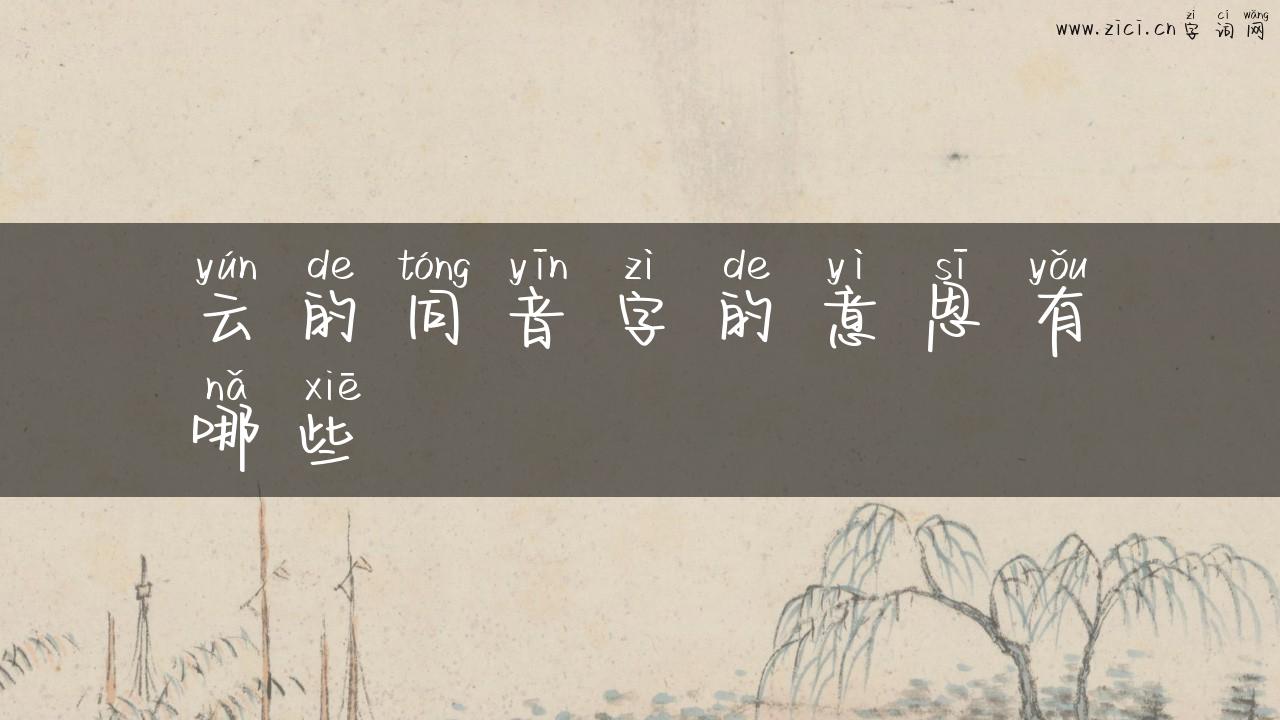 zì cí wǎng
www.zici.cn 字词网
yún de tóng yīn zì de yì sī yǒu
云的同音字的意思有
nǎ xiē
哪些